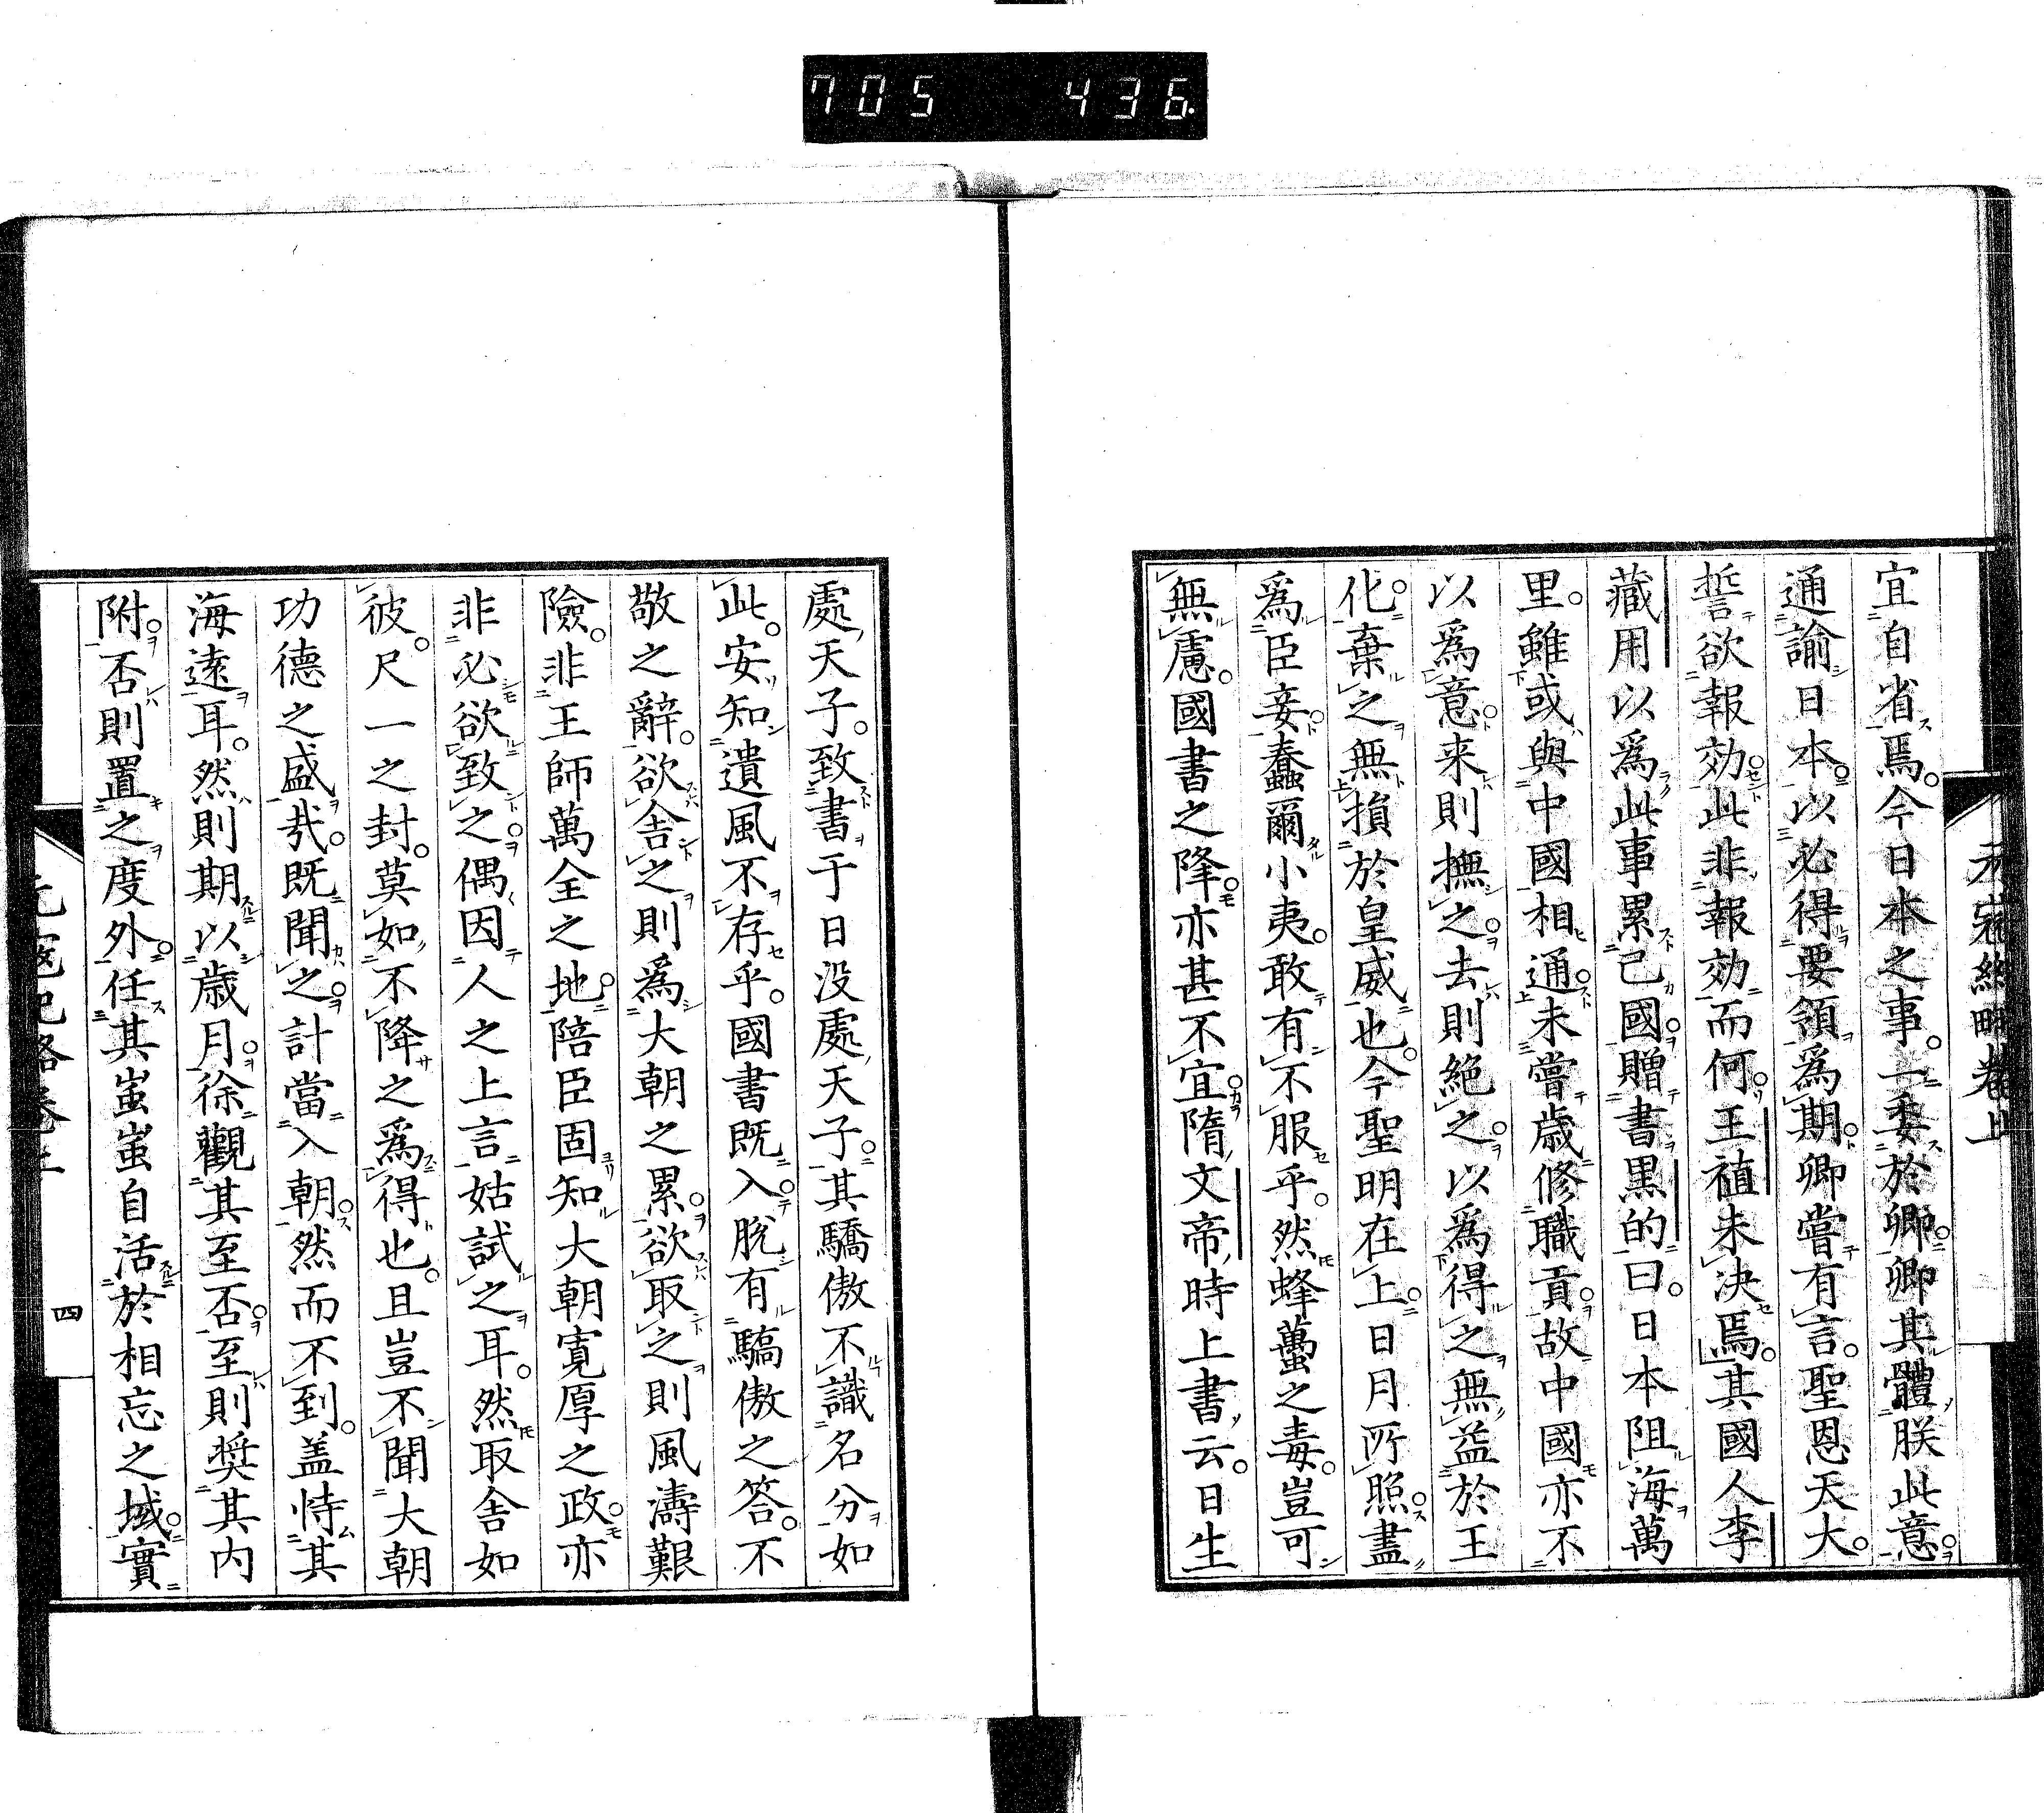 705 436
宜自省焉。今日本之事。一委於卿。卿其體朕此意。
通諭日本。以必得要領爲期。卿嘗有言。聖恩天大。
誓欲報効。此非報効而何。王禃未决焉。其國人李
藏用以爲此事累己國。贈書黒的曰。日本阻海萬
里。雖或與中國相通。未嘗歳修職貢。故中國亦不
以爲意。来則撫之。去則絶之。以爲得之無益於王
化。棄之無損於皇威也。今聖明在上。日月所照。盡
爲臣妾。蠢爾小夷。敢有不服乎。然蜂蠆之毒。豈可
無慮。國書之降。亦甚不宜。隋文帝時上書云。日生
處天子。致書于日没處天子。其驕傲不識名分如
此。安知遺風不存乎。國書既入。脱有驕傲之答。不
敬之辭。欲舍之則爲大朝之累。欲取之則風濤艱
險。非王師萬全之地。陪臣固知大朝寛厚之政。亦
非必欲致之。偶因人之上言。姑試之耳。然取舍如
彼。尺一之封。莫如不降之爲得也。且豈不聞大朝
功德之盛哉。既聞之。計當入朝。然而不到。盖恃其
海遠耳。然則期以歳月。徐觀其至否。至則奨其内
附。否則置之度外。任其蚩蚩自活於相忘之域。實
四